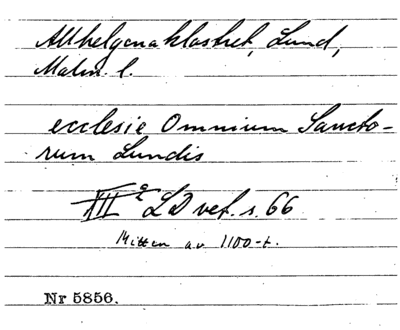 Allhelgonaklostret, Lund,
Malm. l.
ecclesie Omnium Sancto-
rum Lundis
XII e LD vet. s. 66
Mitten av 1100-t.
Nr 5856.